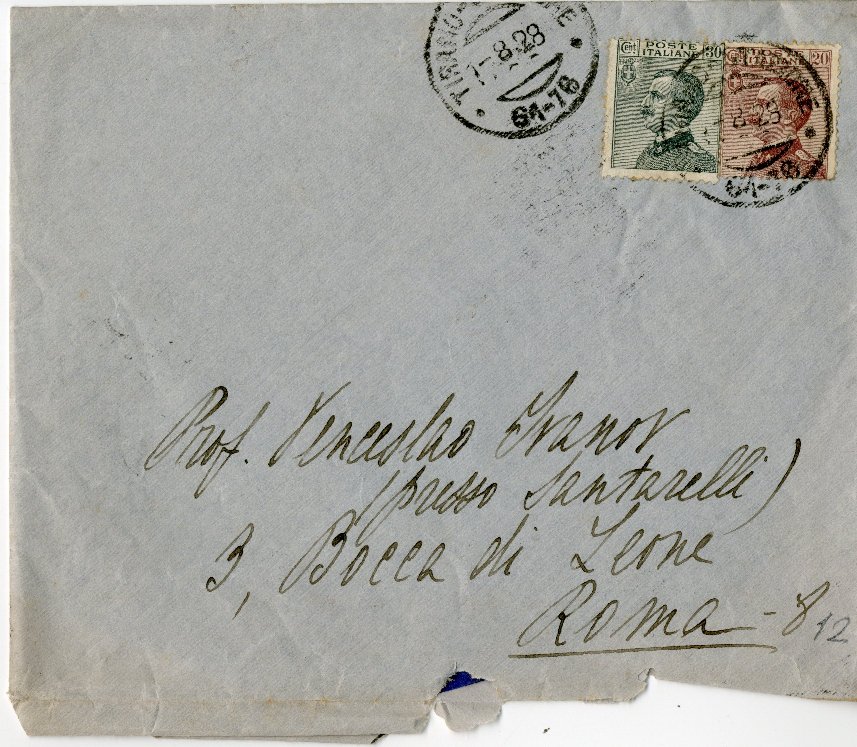 TIRANO
8.28
61-76
Cent 30 POSTE ITALIANE
POSTE ITALIANE 20
8.28
Prof. Venceslao Ivanov
(presso Santarelli)
3, Bocca di Leone
Roma - 8
12